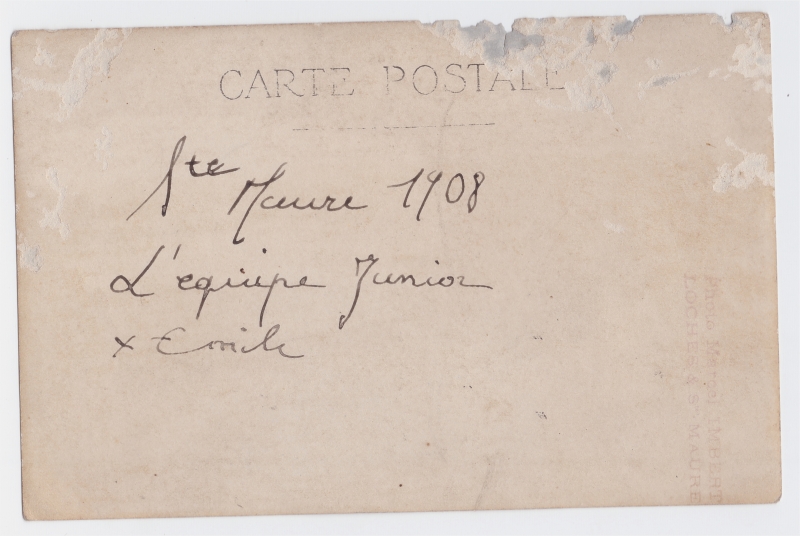 CARTE POSTALE
Ste Maure 1908
L'équipe Junior
x Emile
Photo Marcel IMBERT
LOCHES & Ste MAURE